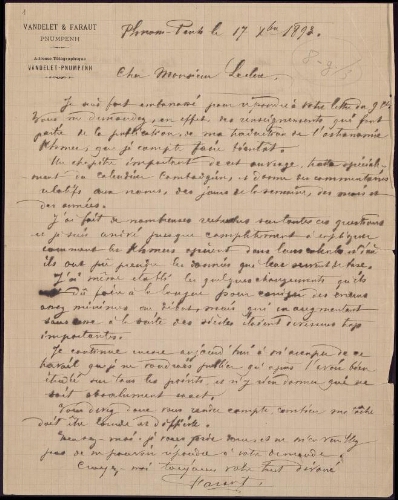 VANDELET & FARAUT
PNUMPENH
Adresse Télégraphique
VANDELET-PNUMPENH
Phnom-Penh le 17 Xbre 189
Cher Monsieur Leclère
Je suis fort embarrassé pour répondre à votre lettre du 9
Vous me demandez, en effet, des renseignements qui font
partie de la publication, de ma traduction de l'astronomie
Khmer, que je compte faire bientôt.
Un chapitre important de cet ouvrage, traite spéciale-
ment du Calendrier Cambodgien, et donne des commentaires
relatifs aux noms, des jours de la semaine, des mois et
des années.
J'ai fait de nombreuses sur toutes ces questions
et je suis arrivé presque complètement à expliquer
comment les Khmers opèrent dans leurs calculs et d'où
ils ont pu prendre les données qui leur servent de base.
J'ai même établi les quelques changements qu'ils
ont dû faire à la longue pour corriger des erreurs
assez minimes au début, mais qui en augmentant
sans cesse à la suite des siècles étaient devenues trop
importantes.
Je continue encore aujourd'hui à m'occuper de ce
travail que je ne voudrais publier qu'après l'avoir bien
étudié sur tous les points, et n'y rien donner qui ne
soit absolument exact.
Vous devez donc vous rendre compte, combien ma tâche
doit être lourde et difficile.
Excusez-moi, je vous prie de ne
pas de ne pouvoir répondre à votre demande et
Croyez-moi toujours votre tout dévoué
Faraut